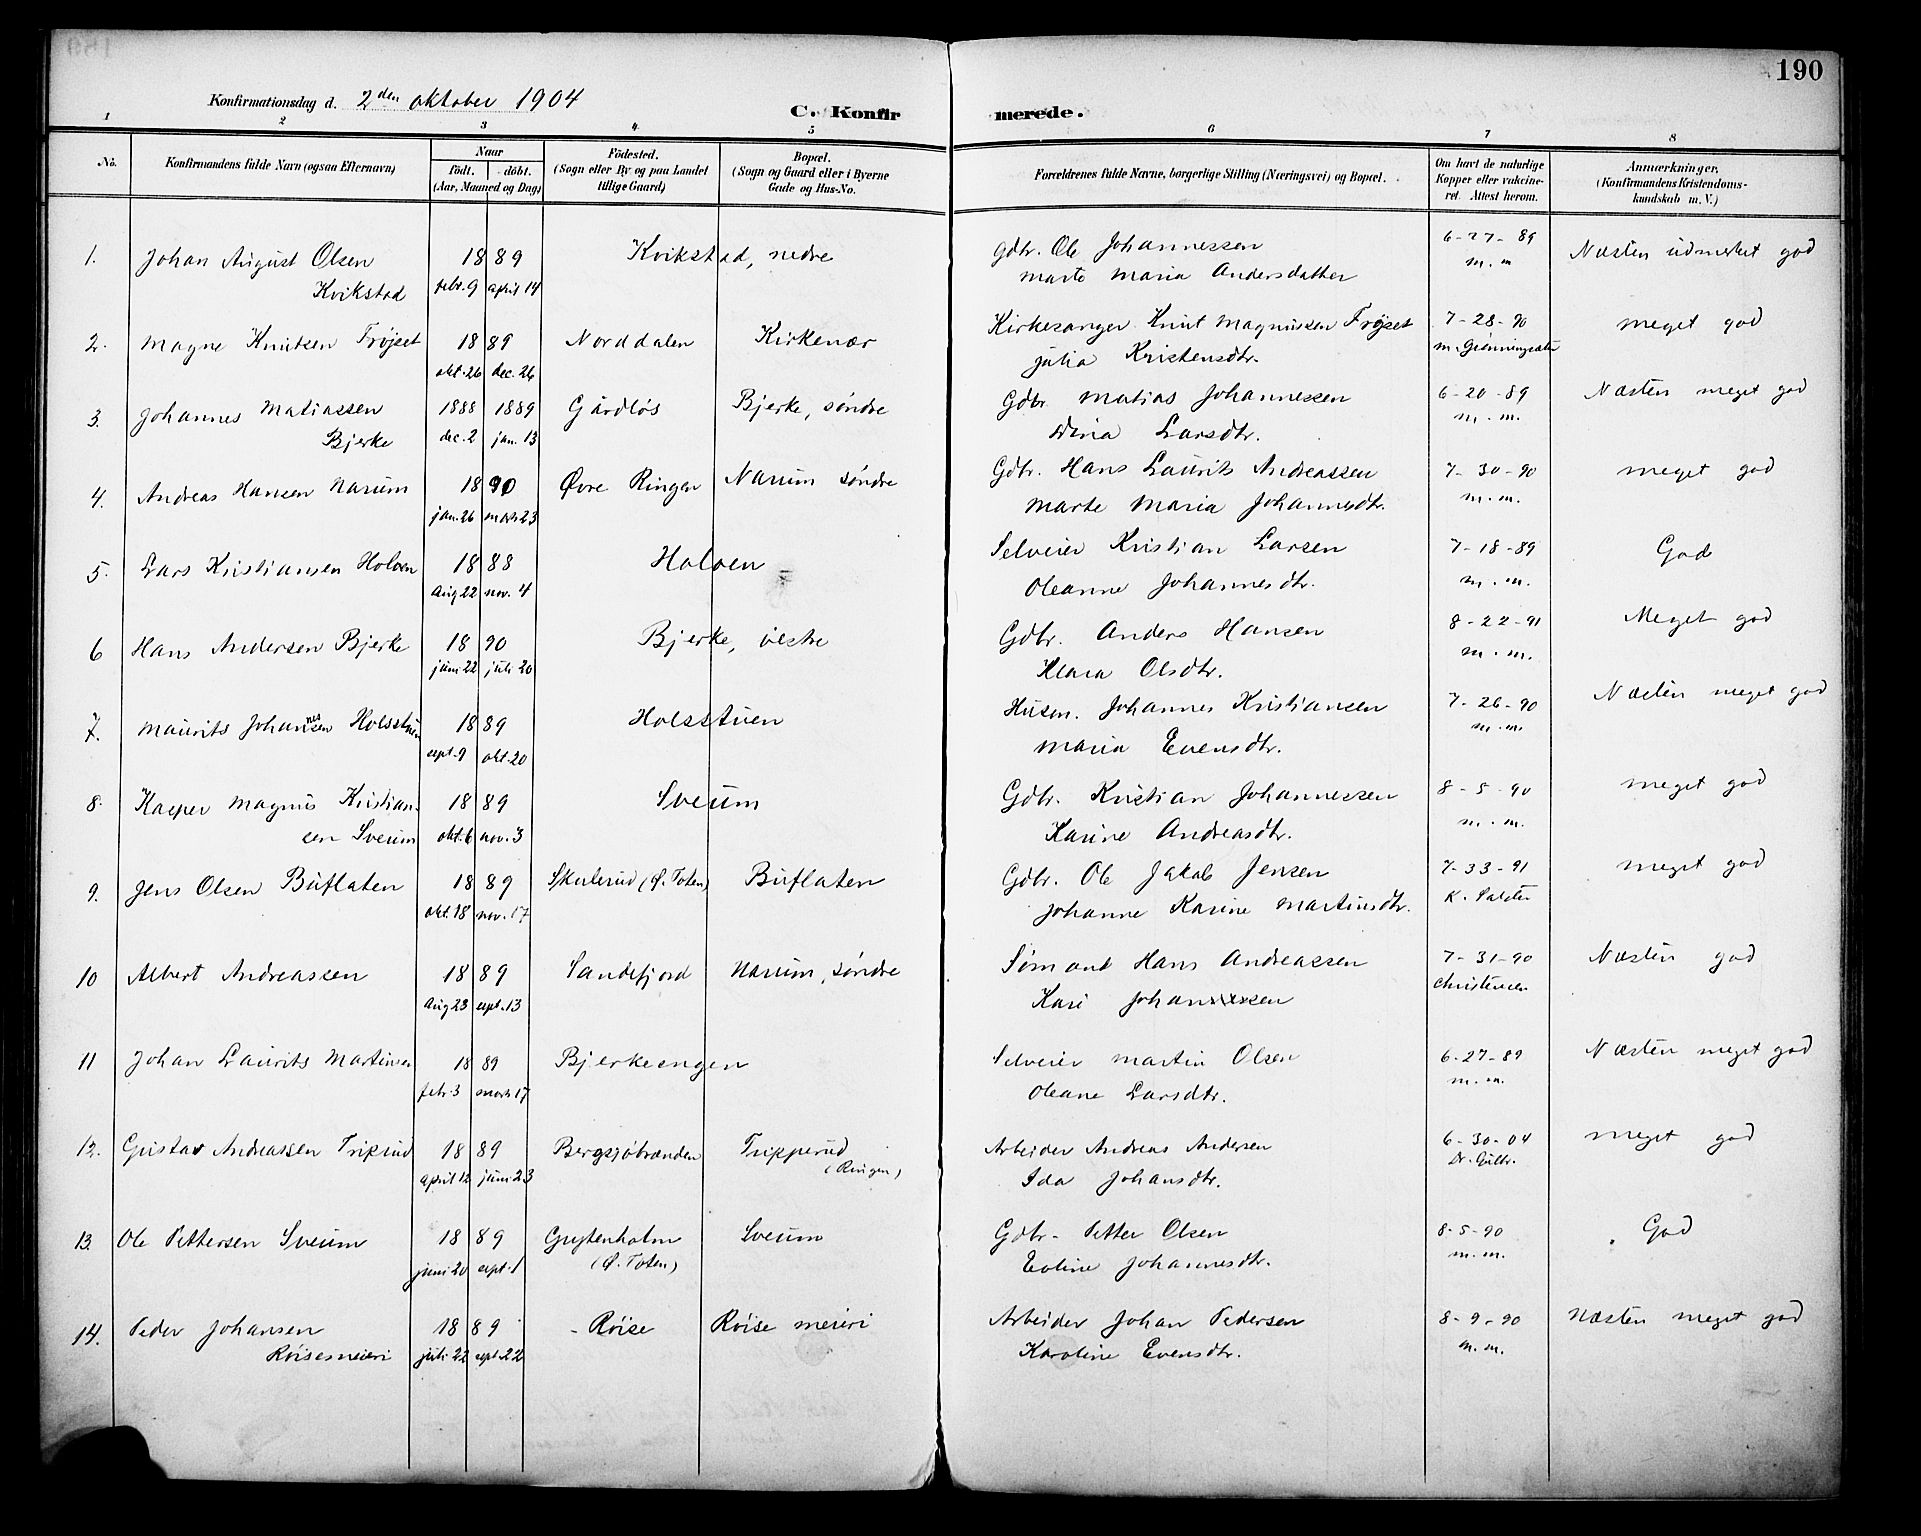 190
Konfirmationsdag d. 2den oktober 1904
C. Konfirmerede.
1 2 3 4 5 6 7 8
No. Konfirmandens fulde Navn (ogsaa Efternavn) Naar födt. döbt. (Aar, Maaned og Dag) Födested. (Sogn eller By og paa Landet tillige Gaard) Bopæl. (Sogn og Gaard eller i Byerne Gade og Hus-No. Forældrenes fulde Navne, borgerlige Stilling (Næringsvei) og Bopæl. Om havt de naturlige Kopper eller vakcineret. Attest herom. Anmærkninger. (Konfirmandens Kristendomskundskab m. V.)
1. Johan August Olsen 18 89 Kvikstad, nedre Gdbr. Ole Johannessen 6-27-89 Næsten udmerket god
Kvikstad febr. 9 april 14 Marte Maria Andersdatter m. m
2. Magne Knutsen Frøjset 18 89 Norddalen Kirkenær Kirkesanger Knut Magnussen Frøjset 7-28-90 meget god
okt. 26 dec. 26 Julia Kristensdtr. m.
3. Johannes Matiassen 1888 1889 Gårdløs Bjerke, søndre Gdbr. Matias Johannessen 6-20-89 Næsten meget god
Bjerke dec. 2 jan. 13 Dina Larsdtr. m. m.
4. Andreas Hansen Narum 18 90 Øvre Ringen Narum søndre Gdbr. Hans Laurits Andreassen 7-30-90 meget god
jan. 26 marts 23 Marte Maria Johannesdtr. m. m.
5. Lars Kristiansen Holoen 18 88 Holoen Selveier Kristian Larsen 7-18-89 God
Aug 22 nov. 4 Oleanne Johannesdtr. m. m.
6 Hans Andersen Bjerke 18 90 Bjerke, østre Gdbr. Anders Hansen 8-22-91 Meget god
juni 22 juli 20 Klara Olsdtr. m. m.
7. Maurits Johannessen Holsstuen 18 89 Holsstuen Husm. Johannes Kristiansen 7-26-90 Næsten meget god
sept. 9 okt. 20 Maria Evensdtr. m. m.
8. Kasper Magnus Kristian- 18 89 Sveum Gdbr. Kristian Johannessen 8-5-90 meget god
sen Sveum okt. 6 nov. 3 Karine Andreasdtr. m. m.
9. Jens Olsen Buflaten 18 89 Skulerud (Ø. Toten) Buflaten Gdbr. Ole Jakob Jensen 7-33-91 meget god
okt. 18 nov. 17 Johanne Karine Martinsdtr. K.
10 Albert Andreassen 18 89 Sandefjord Narum, søndre Sømand Hans Andreassen 7-31-90 Næsten god
Aug 23 sept. 13 Kari Johansen Christensen
11 Johan Laurits Martinsen 18 89 Bjerkeengen Selveier Martin Olsen 6-27-89 Næsten meget god
febr. 3 marts 17 Oleane Larsdtr. m. m.
12. Gustav Andreassen Triprud 18 89 Bergsjøbrænden Tripperud Arbeider Andreas Andersen 6-30-04 meget god
april 12 juni 23 (Ringen) Ida Johansdtr. Dr. Gulbr.
13. Ole Pettersen Sveum 18 89 Grytenholm Sveum Gdbr. Petter Olsen 8-5-90 God
juni 20 sept. 1 (Ø. Toten) Eoline Johannesdtr. m. m.
14. Peder Johansen 18 89 Røise Røise meieri Arbeider Johan Pedersen 8-9-90 Næsten meget god
Røisemeieri juli 22 sept. 22 Karoline Evensdtr. m. m.